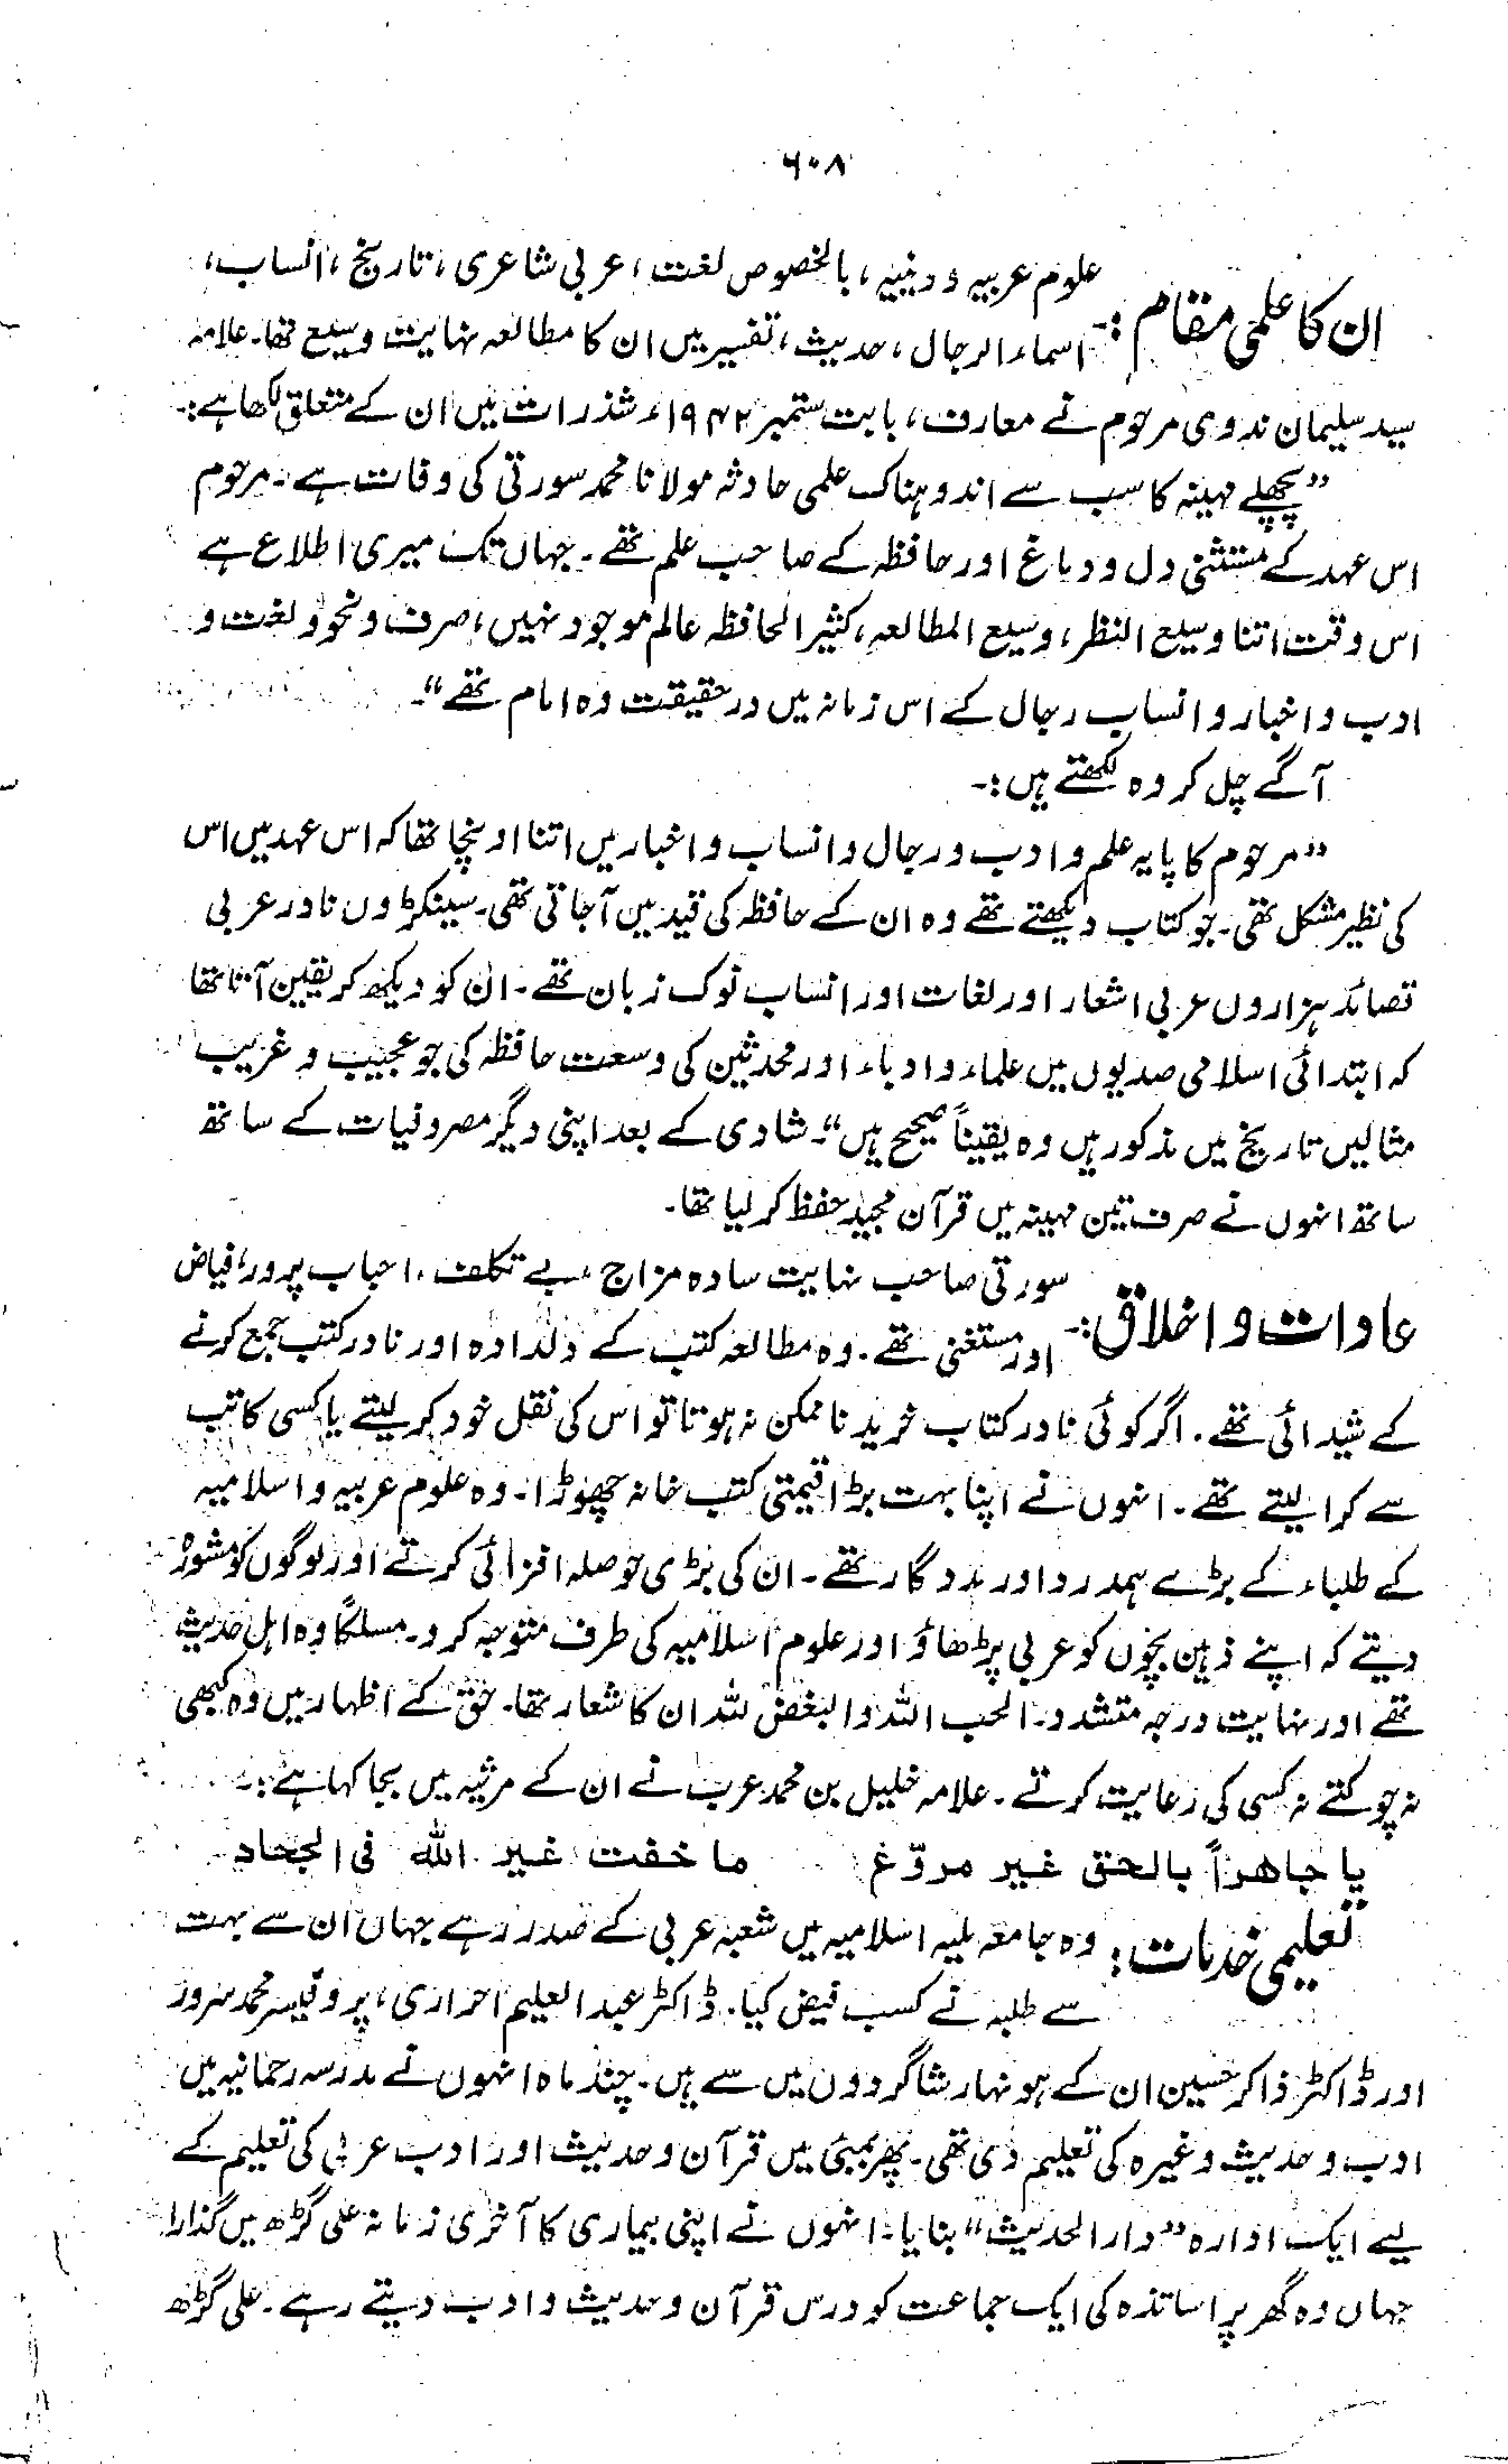 ۶۰۸
ان کا علمی مقام :- علوم عربیہ و دینیہ ، بالخصوص لغت ، عربی شاعری ، تاریخ ، انساب ،
اسماء الرجال ، حدیث ، تفسیر میں ان کا مطالعہ نہایت وسیع تھا۔ علامہ
سید سلیمان ندوی مرحوم نے معارف ، بابت ستمبر ۱۹۴۲ء شذرات میں ان کے متعلق لکھا ہے :-
”پچھلے مہینہ کا سب سے اندوہناک علمی حادثہ مولانا محمد سورتی کی وفات ہے۔ مرحوم
اس عہد کے مستثنیٰ دل و دماغ اور حافظہ کے صاحب علم تھے۔ جہاں تک میری اطلاع ہے
اس وقت اتنا وسیع النظر ، وسیع المطالعہ ، کثیر الحافظہ عالم موجود نہیں ، صرف و نحو و لغت و
ادب و اخبار و انساب رجال کے اس زمانہ میں درحقیقت وہ امام تھے“۔
آگے چل کر وہ لکھتے ہیں :-
”مرحوم کا پایہ علم و ادب و رجال و انساب و اخبار میں اتنا اونچا تھا کہ اس عہد میں اس
کی نظیر مشکل تھی۔ جو کتاب دیکھتے تھے وہ ان کے حافظہ کی قید میں آجاتی تھی۔ سینکڑوں نادر عربی
قصائد ہزاروں عربی اشعار اور لغات اور انساب نوک زبان تھے۔ ان کو دیکھ کر یقین آتا تھا
کہ ابتدائی اسلامی صدیوں میں علماء و ادباء اور محدثین کی وسعت حافظہ کی جو عجیب و غریب
مثالیں تاریخ میں مذکور ہیں وہ یقیناً صحیح ہیں“۔ شادی کے بعد اپنی دیگر مصروفیات کے ساتھ
ساتھ انہوں نے صرف تین مہینہ میں قرآن مجید حفظ کر لیا تھا۔
عادات و اخلاق :- سورتی صاحب نہایت سادہ مزاج ، بے تکلف ، احباب پرور ، فیاض
اور مستغنی تھے۔ وہ مطالعہ کتب کے دلدادہ اور نادر کتب جمع کرنے
کے شیدائی تھے۔ اگر کوئی نادر کتاب خرید نا ممکن نہ ہوتا تو اس کی نقل خود کر لیتے یا کسی کاتب
سے کرا لیتے تھے۔ انہوں نے اپنا بہت بڑا قیمتی کتب خانہ چھوڑا۔ وہ علوم عربیہ و اسلامیہ
کے طلباء کے بڑے ہمدرد اور مددگار تھے۔ ان کی بڑی حوصلہ افزائی کرتے اور لوگوں کو مشورہ
دیتے کہ اپنے ذہین بچوں کو عربی پڑھاؤ اور علوم اسلامیہ کی طرف متوجہ کرو۔ مسلکاً وہ اہل حدیث
تھے اور نہایت درجہ متشدد۔ الحب اللہ والبغض للہ ان کا شعار تھا۔ حق کے اظہار میں وہ کبھی
نہ چوکتے نہ کسی کی رعایت کرتے۔ علامہ خلیل بن محمد عرب نے ان کے مرثیہ میں بجا کہا ہے :-
یا جاهراً بالحق غیر مروّغ ما خفت غیر الله فی الجحاد
تعلیمی خدمات : وہ جامعہ ملیہ اسلامیہ میں شعبہ عربی کے صدر رہے جہاں ان سے بہت
سے طلبہ نے کسب فیض کیا۔ ڈاکٹر عبد العلیم احراری ، پروفیسر محمد سرور
اور ڈاکٹر ذاکر حسین ان کے ہونہار شاگردوں میں سے ہیں۔ چند ماہ انہوں نے مدرسہ رحمانیہ میں
ادب و حدیث وغیرہ کی تعلیم دی تھی۔ پھر بمبئی میں قرآن و حدیث اور ادب عربی کی تعلیم کے
لیے ایک ادارہ ”دار الحدیث“ بنایا۔ انہوں نے اپنی بیماری کا آخری زمانہ علی گڑھ میں گذارا
جہاں وہ گھر پر اساتذہ کی ایک جماعت کو درس قرآن و حدیث و ادب دیتے رہے۔ علی گڑھ